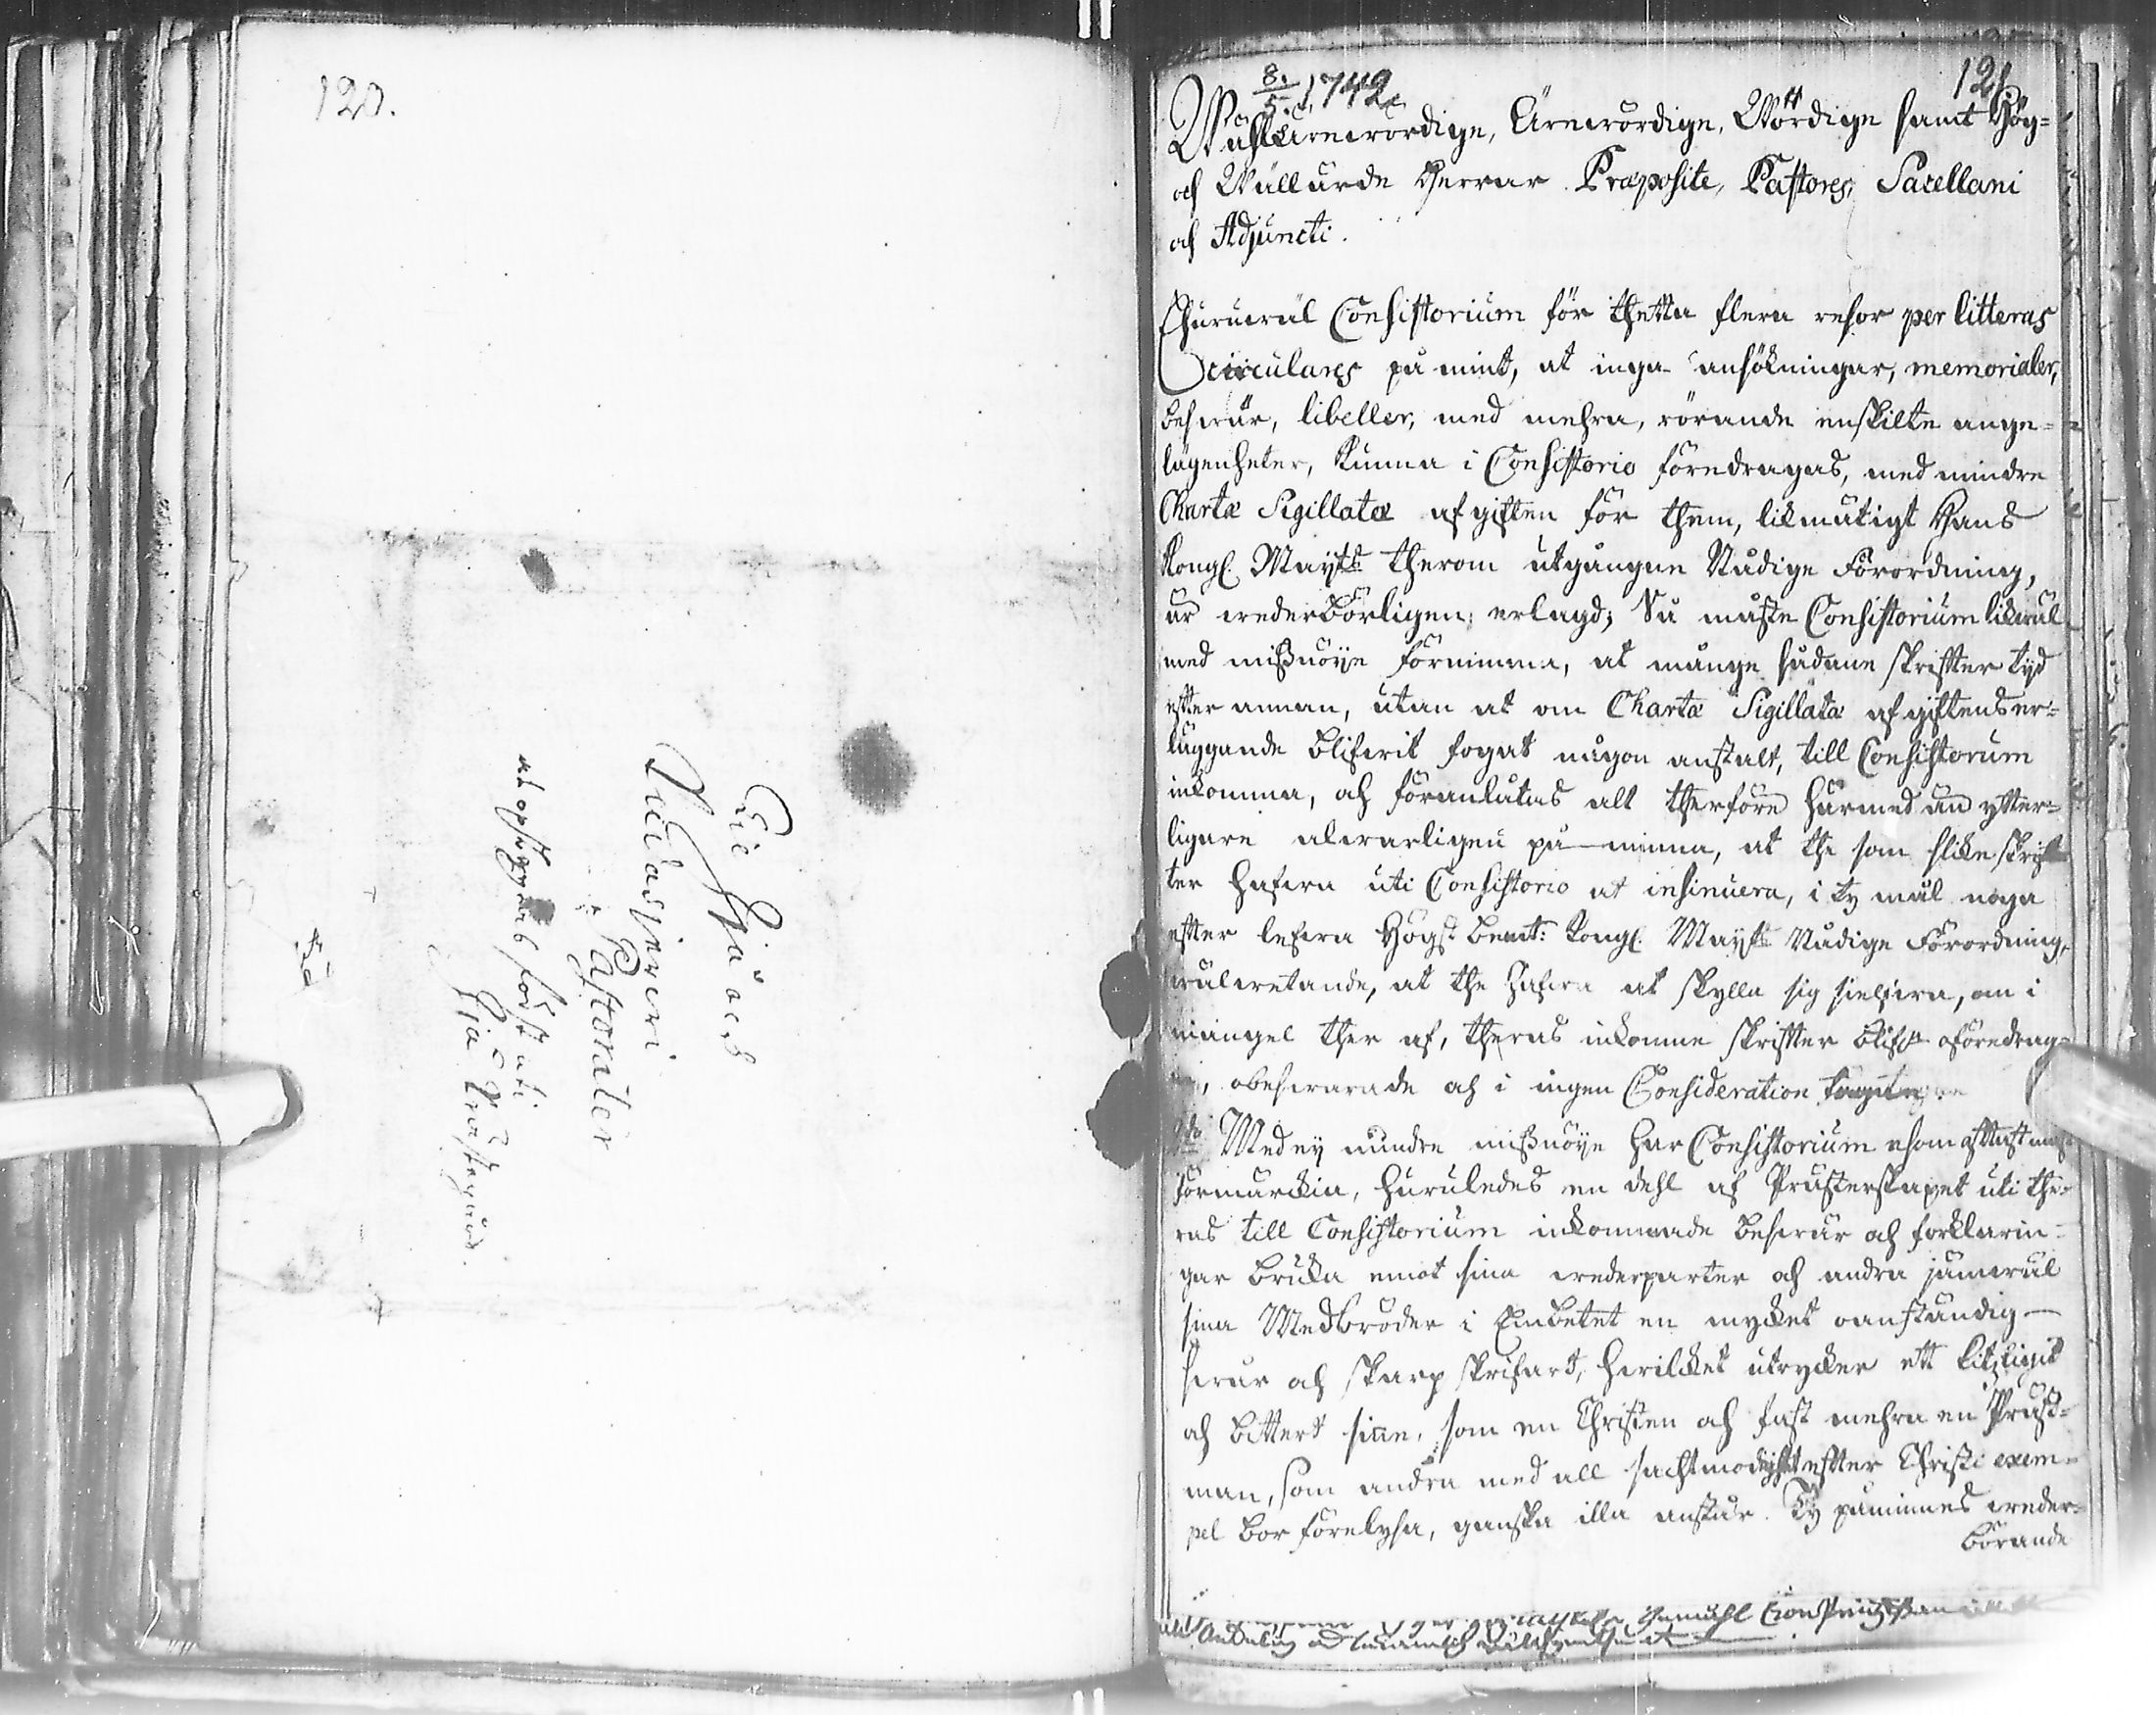 120.
Til Hiå och
Pastorater
at opskickas först uti
Hiå Prästegård.
121
8/5. 1742
Wählährewördige, Ährewördige, Wördige samt Hög-
och Wällärde Herrar Præposite, Pastores, Sacellani
och Adjuncti.
Ehuruwäl Consistorium för thetta flera resor per litteras
circulares påmint, at inga ansökningar, memorialer,
beswär, libeller, med mehra, rörande enskilte ange-
lägenheter, kunna i Consistorio föredragas, med mindre
Charta Sigillatæ afgiften för them, likmätigt Hans
Kongl. Mayts therom utgångne Nådige Förordning,
är wederbörligen erlagd; Så måste Consistorium likwäl
med missnöye förnimma, at många sådane skrifter tyd
efter annan, utan at om Charta Sigillatæ afgiftens er-
läggande blifwit fogat någon anstalt, till Consistorium
inkomma, och föranlåtas alt therföre härmed än ytter-
ligare alwarligen på-minna, at the som slike skrif-
ter hafwa uti Consistorio at insinuera, i ty mål noga
efter lefwa Högst bemt: Kongl. Mayts Nådige Förordning,
wäl wetande, at the hafwa at skylla sig sielfwa, om i
mangel ther af, theras inkomne skrifter blifwa oföredrag-
, obeswarade och i ingen Consideration tagne
2do Med ey mindre missnöye har Consistorium som oftast måst
förmärckia, huruledes en dehl af Prästerskapet uti the-
ras till Consistorium inkommande beswär och förklarin-
gar bruka emot sina wederparter och andra jämwäl
sina Medbröder i Embetet en mycket oanständig
swår och skarp skrifart, hwilcket utrycker ett kitzligit
och bittert sinne, som en Christen och fast mehra en Präst-
man, som andra med all sachtmodighet efter Christi exem-
pel bör förelysa, ganska illa anstår. Ty påminnes weder-
börande